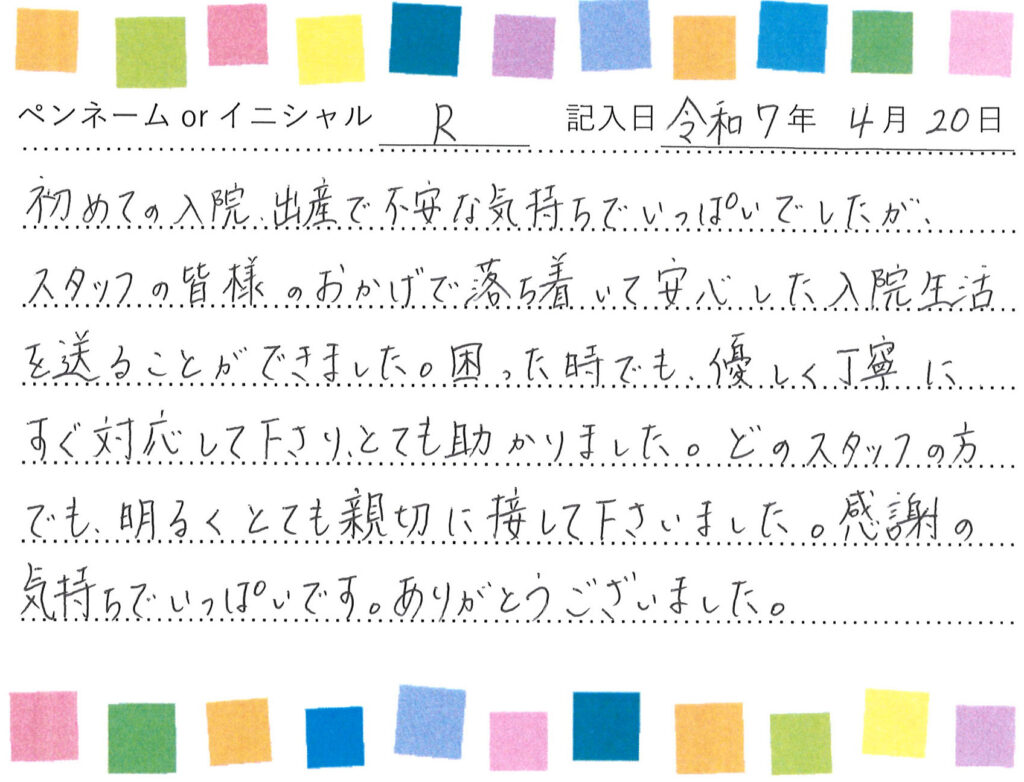 ペンネーム or イニシャル R 記入日 令和7年 4月 20日
初めての入院、出産で不安な気持ちでいっぱいでしたが、
スタッフの皆様のおかげで落ち着いて安心した入院生活
を送ることができました。困った時でも、優しく丁寧に
すぐ対応して下さり、とても助かりました。どのスタッフの方
でも、明るくとても親切に接して下さいました。感謝の
気持ちでいっぱいです。ありがとうございました。